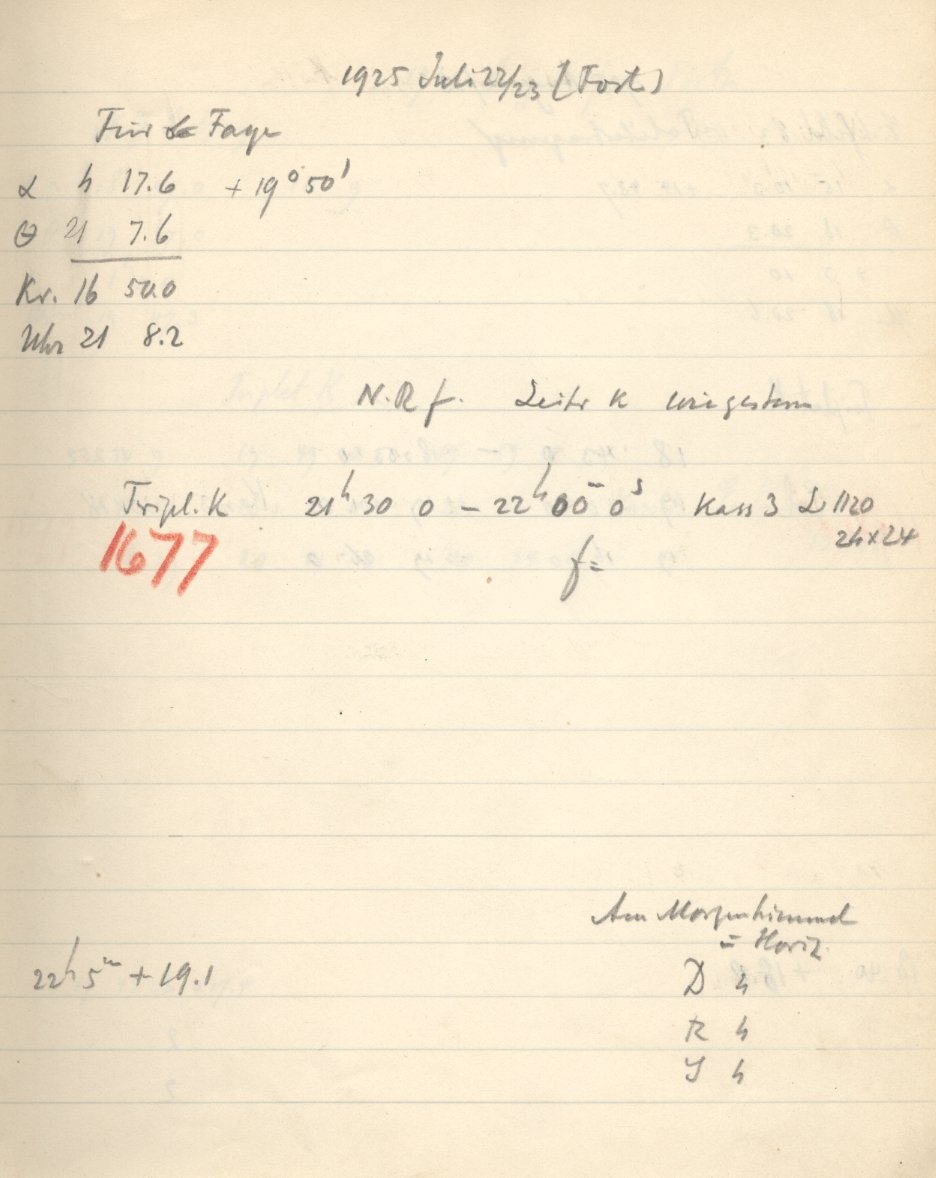 1925 Juli 22/23 [Forts]
Für Faye
α 4 17.6 + 19° 50'
θ 21 7.6
Kr. 16 50.0
Uhr 21 8.2
N.R f. Leitr K wie gestern
Tripl. K 21h 30 0 – 22h 00m 0s Kass 3 L 1120
24x24
1677
f=
Am Morgenhimmel
= Horiz.
22h 5m + 19.1
D 4
R 4
S 4